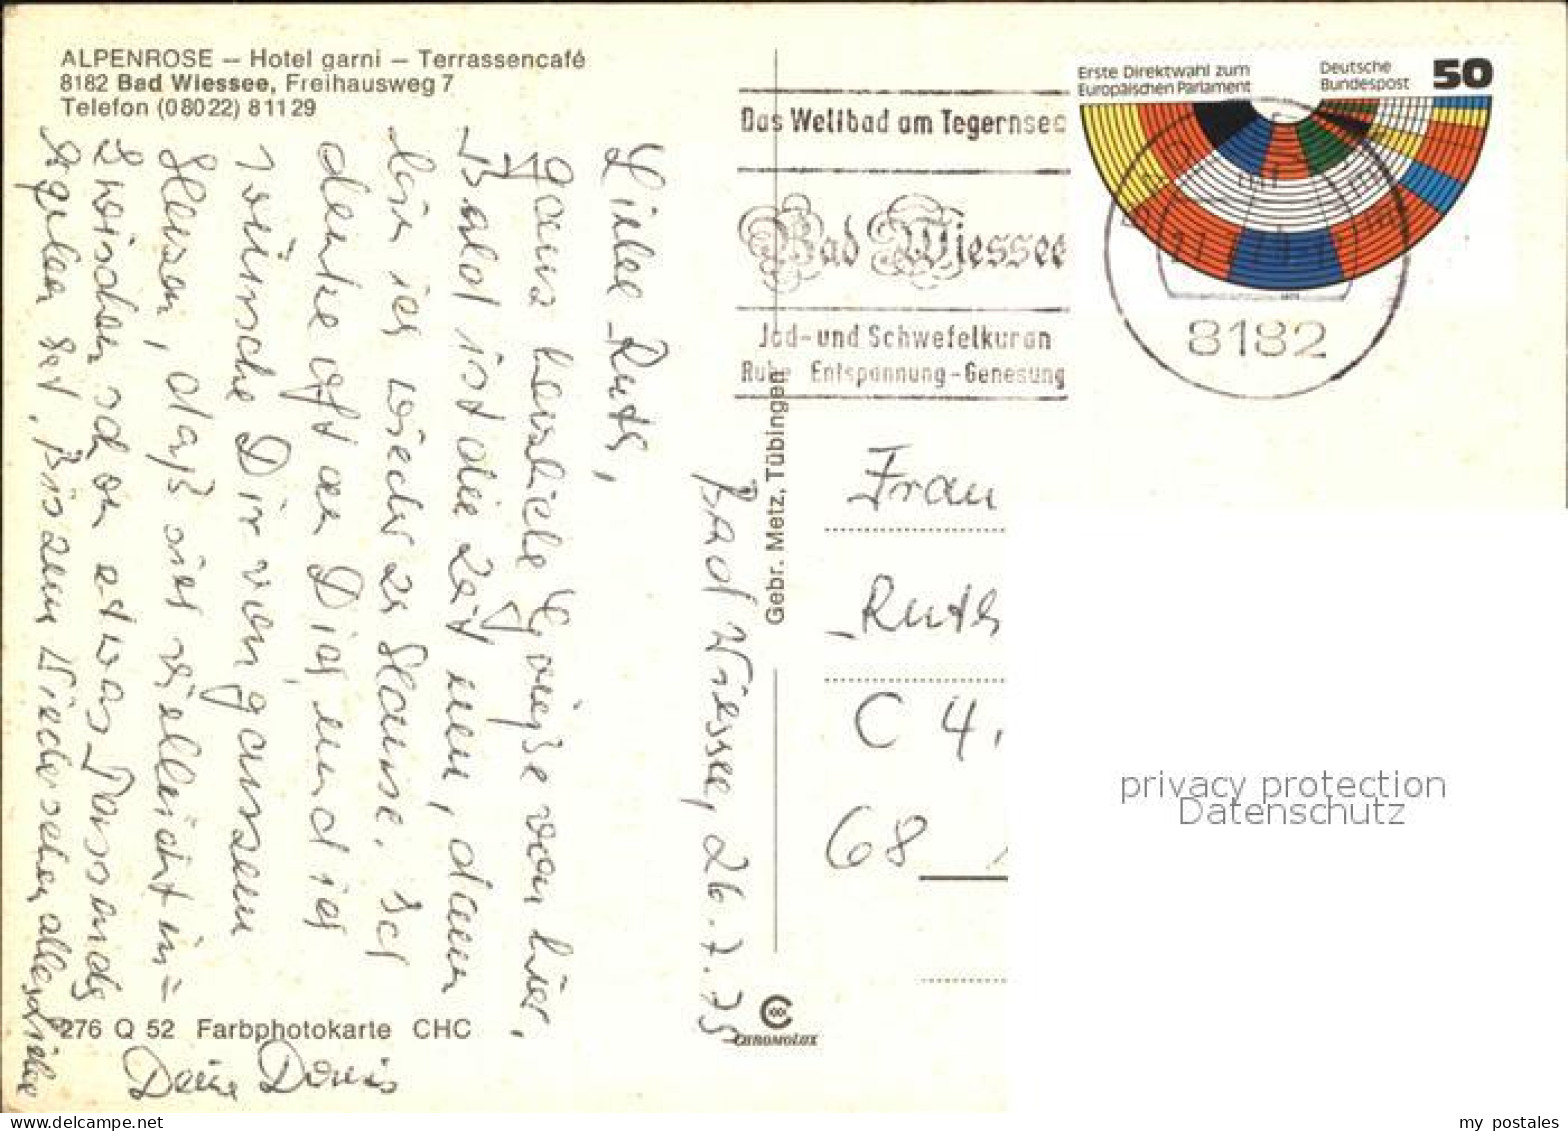 ALPENROSE – Hotel garni – Terrassencafé
8182 Bad Wiessee, Freihausweg 7
Telefon (08022) 81129
Das Weltbad am Tegernsee
Bad Wiessee
Jod- und Schwefelkuren
Ruhe Entspannung - Genesung
Erste Direktwahl zum
Europäischen Parlament
Deutsche
Bundespost
50
8182
Gebr. Metz, Tübingen
Bad Wiessee, 26.7.
Liebe Ruth,
Ganz herzliche Grüße von hier,
Bald ist die Zeit um, dann
bin ich wieder zu Hause. Ich
denke oft an Dich und ich
wünsche Dir von ganzem
Herzen, daß sich vielleicht in=
zwischen schon etwas Passendes
ergeben hat. Bis zum Wiedersehen alles Liebe
Deine Doris
Frau
Ruth
C 4,
68
276 Q 52 Farbphotokarte CHC
CHROMOLUX
privacy protection
Datenschutz
my postales